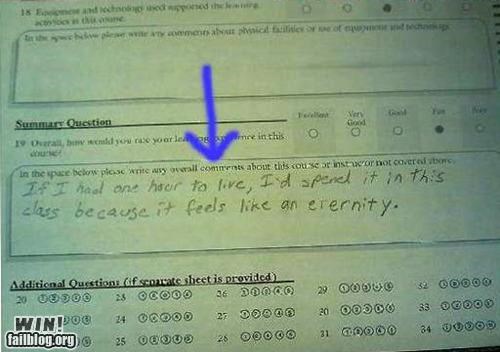 18 Equipment and technology used supported the learning
activities in this course.
In the space below please write any comments about physical facilities or use of equipment and technology.
Summary Question
Excellent Very Good Good Fair Poor
19 Overall, how would you rate your learning experience in this
course?
In the space below please write any overall comments about this course or instructor not covered above.
If I had one hour to live, I'd spend it in this
class because it feels like an eternity.
Additional Questions (if separate sheet is provided)
20 ① ② ③ ④ ⑤ 23 ① ② ③ ④ ⑤ 26 ① ② ③ ④ ⑤ 29 ① ② ③ ④ ⑤ 32 ① ② ③ ④ ⑤
24 ① ② ③ ④ ⑤ 27 ① ② ③ ④ ⑤ 30 ① ② ③ ④ ⑤ 33 ① ② ③ ④ ⑤
25 ① ② ③ ④ ⑤ 28 ① ② ③ ④ ⑤ 31 ① ② ③ ④ ⑤ 34 ① ② ③ ④ ⑤
WIN!
failblog.org